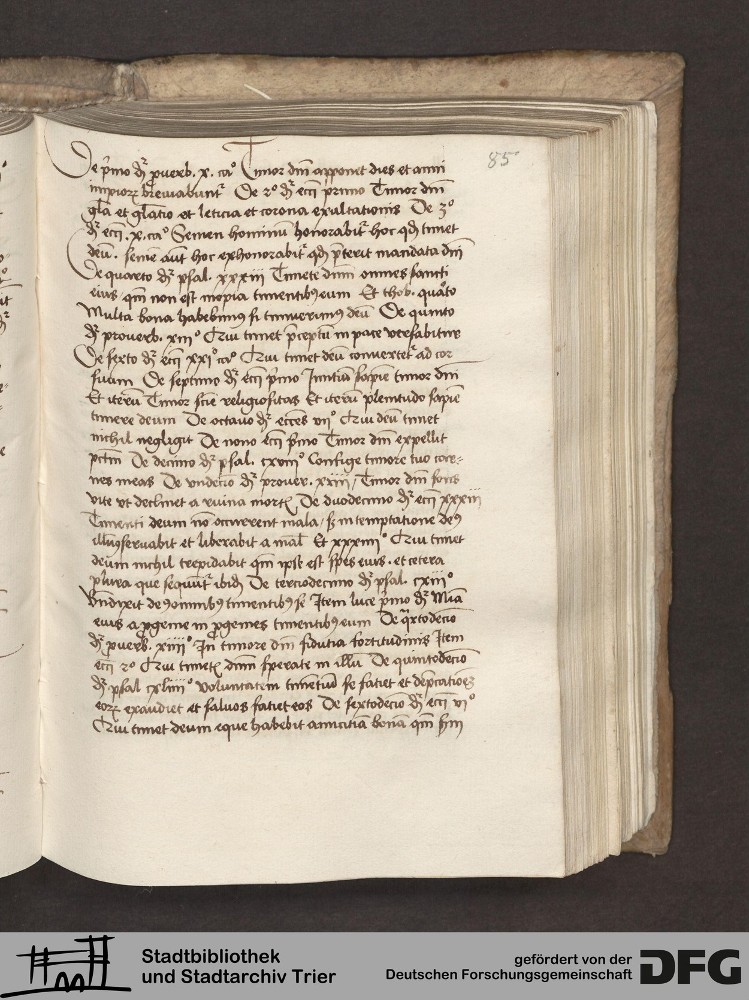 85
De pṙmo dr̄ proverb. x. caº Timor dn̄i apponet dies et anni
impiorꝝ breviabuntᷣ De 2º dr̄ ecci primo Timor dn̄i
gl̄a et gl̄atio et leticia et corona exultationis De 3º
dr̄ ecci .x. caº Semen hominū honorabitᷣ hoc qd̄ timet
deū. semē aūt hoc exhonorabitᷣ qd̄ p̄terit mandata dn̄i
De quarto dr̄ psal. xxxiii Timete dn̄m omnes sancti
eius qm̄ non est inopia timentibꝯ eum Et thob. quarto
Multa bona habebimꝯ si timuerimꝯ deū De quinto
dr̄ proverb. xiiiº Qui timet p̄ceptū in pace versabitur
De sexto dr̄ ecci xxiº caº Qui timet deū convertetᷣ ad cor
suum De septimo dr̄ ecci pṙmo Initiū sapīe timor dn̄i
Et iterū Timor sciē religiositas Et iterū plenitudo sapīe
timere deum De octavo dr̄ ecces viiº Qui deū timet
nichil negligit De nono ecci pṙmo Timor dn̄i expellit
pctm̄ De decimo dr̄ psal. cxviiiº Confige timore tuo car=
nes meas De undecīo dr̄ prover. xiiii / Timor dn̄i fons
vite ut declinet a ruina mortꝭ De duodecimo dr̄ ecci xxxiii
Timenti deum nō occurrent mala / sꝫ in temptatione deꝯ
illū ꝯservabit et liberabit a mal̄ Et xxxiiiiº Qui timet
deum nichil trepidabit qm̄ ipse est spes eius . et cetera
plura que sequūtᷣ ibid̄ De terciodecimo dr̄ psal. cxiiiº
Bn̄dixit deꝯ omnibꝯ timentibꝯ se Item luce pṙmo dr̄ Mīa
eius a ꝓgenie in ꝓgenies timentibꝯ eum De qᷓrtodecīo
dr̄ proverb. xiiiiº In timore dn̄i fidutia fortitudinis Item
ecci 2º Qui timetꝭ dn̄m sperate in illū De quintodecīo
dr̄ psal cxliiiiº Voluntatem timētiū se faciet et dep̄catioēꝫ
eorꝝ exaudiet et salvos faciet eos De sextodecīo dr̄ ecci viº
Qui timet deum eque habebit amicitiā bonā qm̄ sm̄
Stadtbibliothek
und Stadtarchiv Trier
gefördert von der
Deutschen Forschungsgemeinschaft
DFG